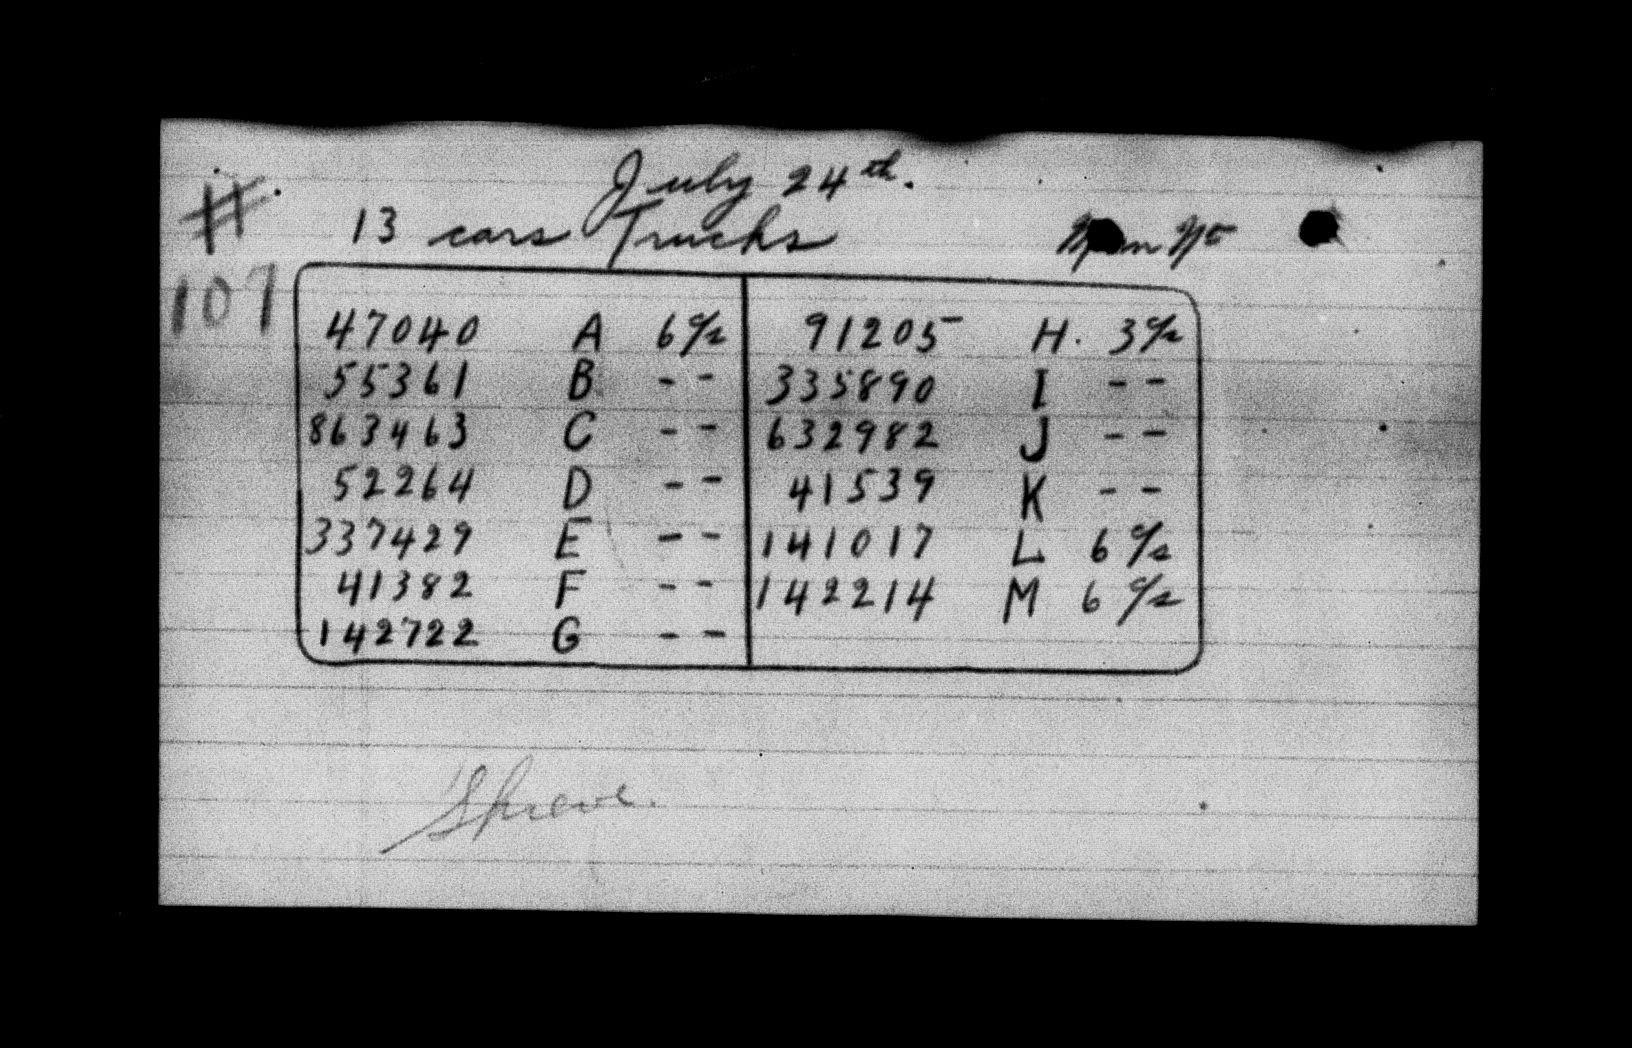 July 24th.
# 13 cars Trucks
107
47040 A 6 c/s 91205 H. 3 c/s
55361 B - - 335890 I - -
863463 C - - 632982 J - -
52264 D - - 41539 K - -
337429 E - - 141017 L 6 c/s
41382 F - - 142214 M 6 c/s
142722 G - -
Shreve.